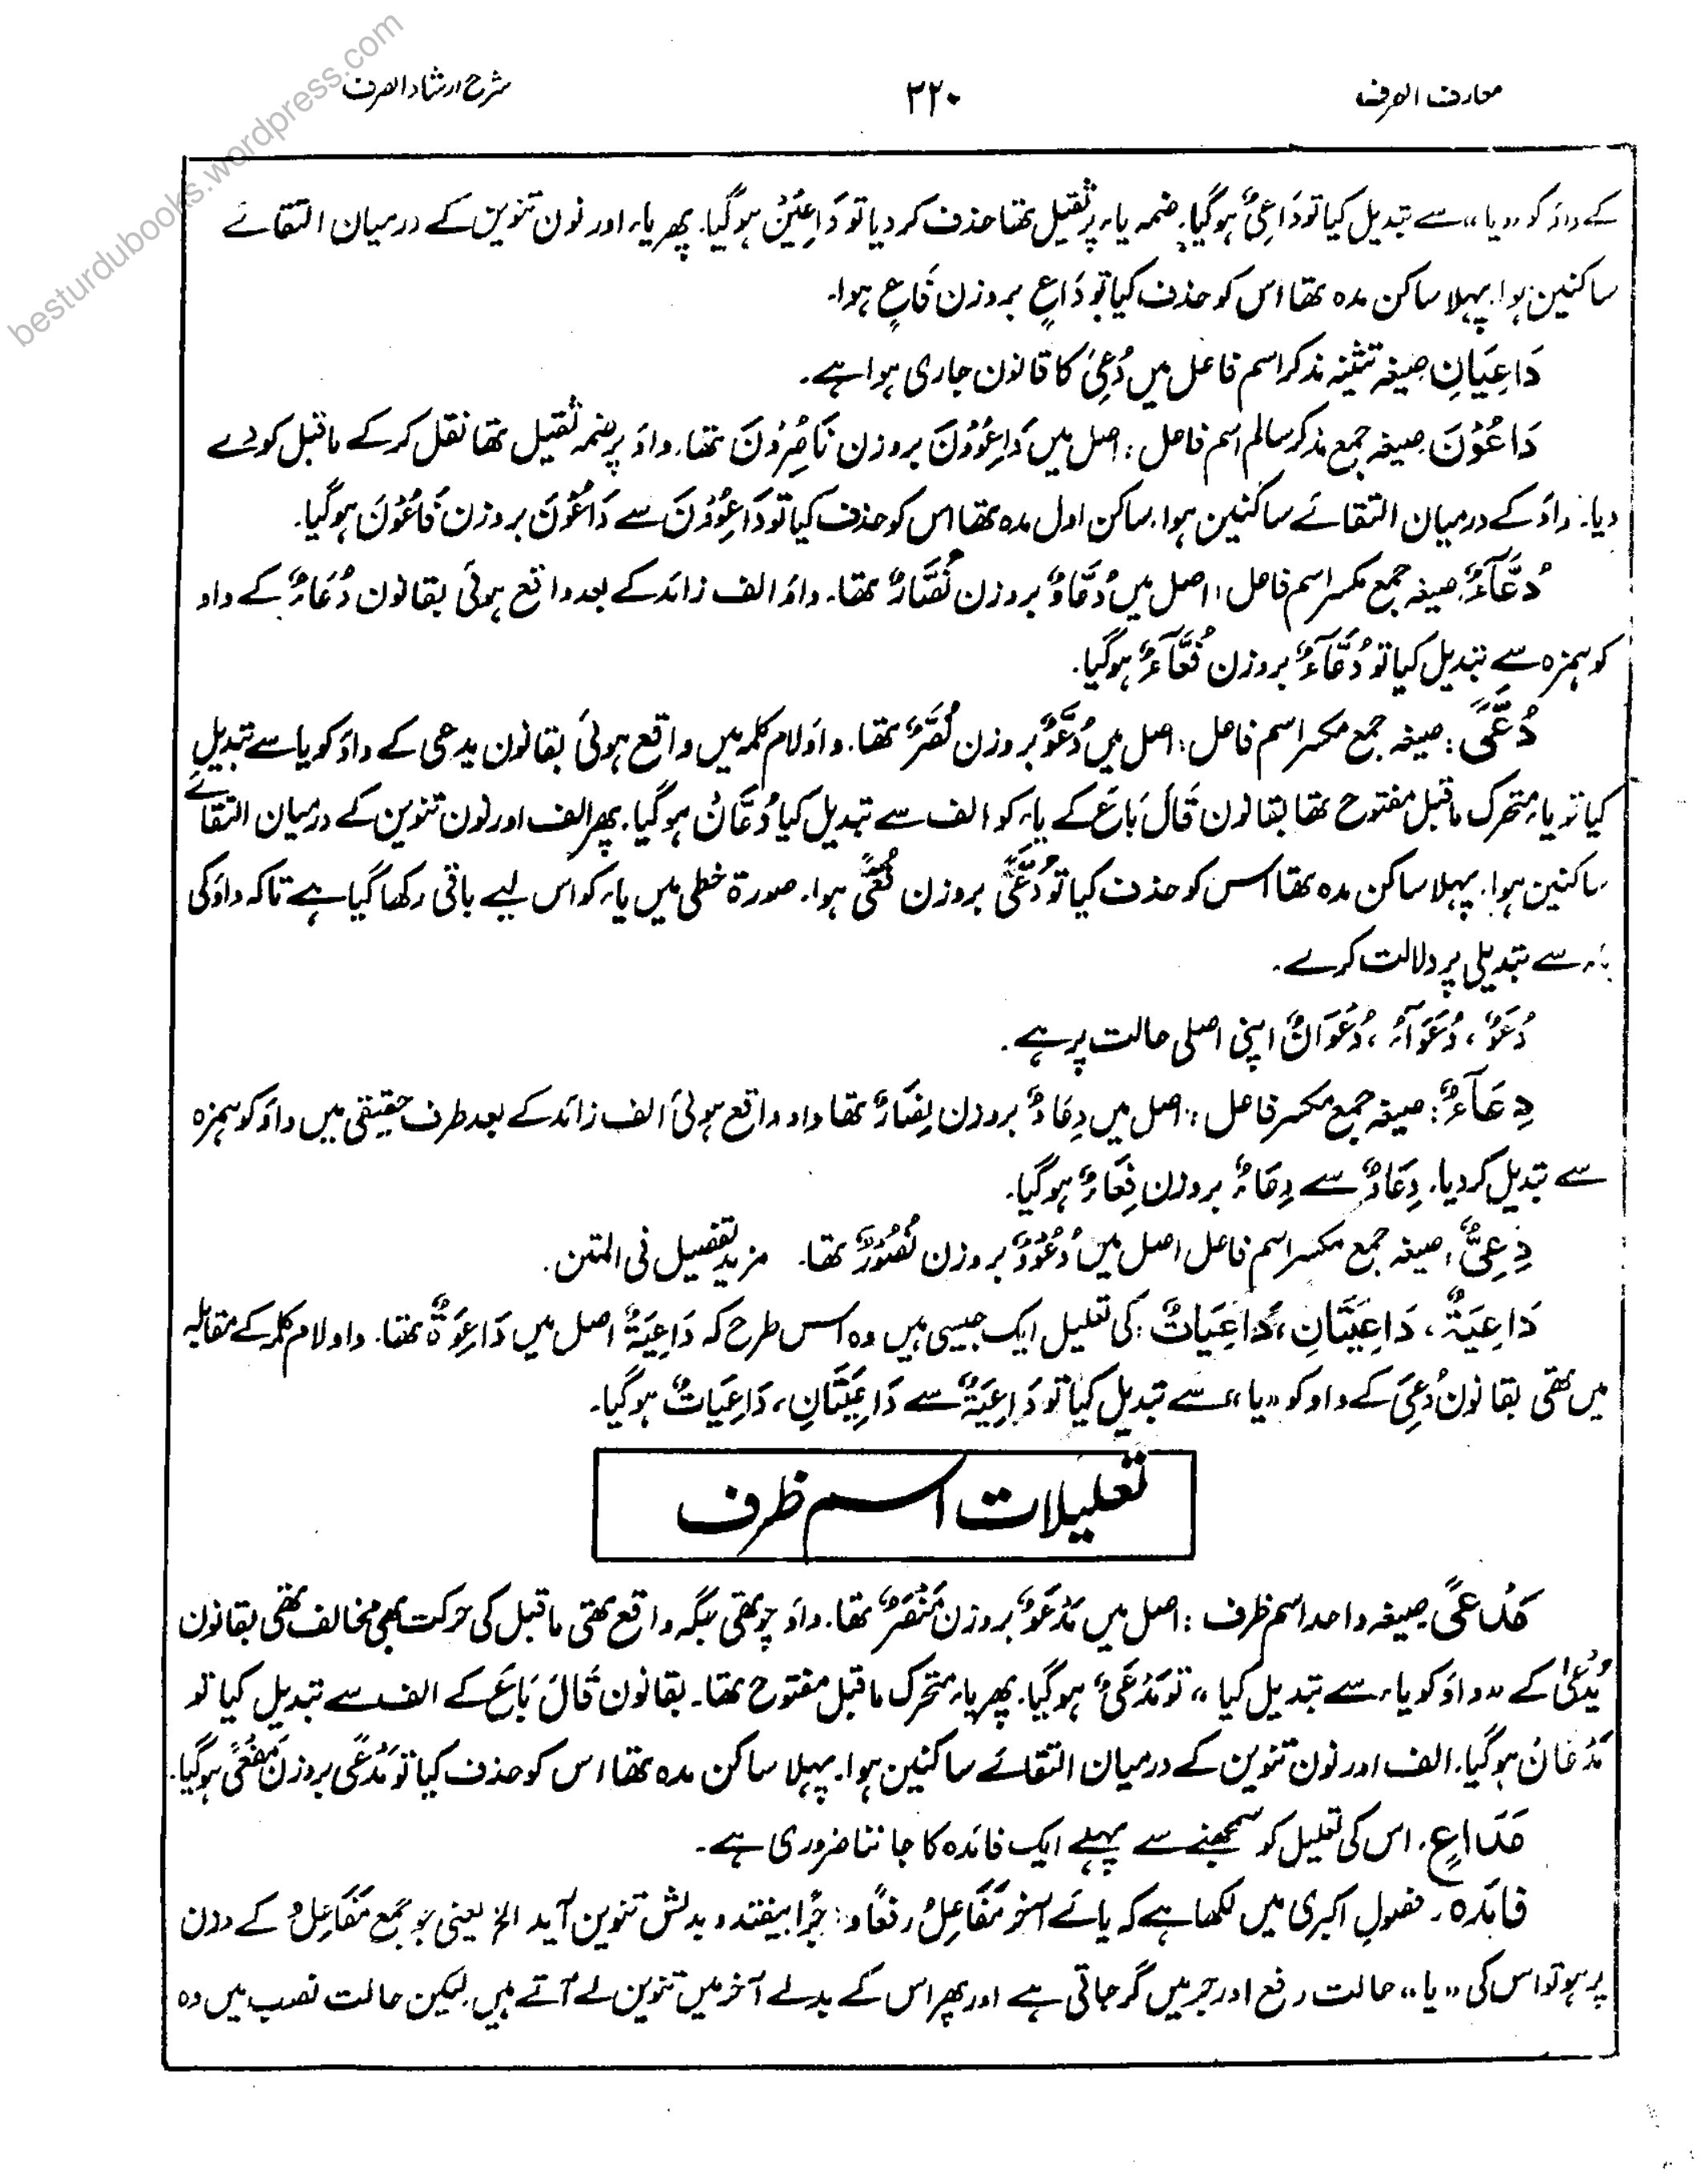 معارف الصرف
۳۲۰
شرح ارشاد الصرف
besturdubooks.wordpress.com
کے واؤ کو «یا» سے تبدیل کیا تو دَاعِیٌ ہوگیا۔ ضمہ یاء پر ثقیل تھا حذف کر دیا تو دَاعِیْنْ ہوگیا۔ پھر یاء اور نون تنوین کے درمیان التقائے
ساکنین ہوا۔ پہلا ساکن مدہ تھا اس کو حذف کیا تو دَاعٍ بروزن فَاعٍ ہوا۔
دَاعِیَانِ صیغہ تثنیہ مذکر اسم فاعل میں دُعِیَ کا قانون جاری ہوا ہے۔
دَاعُوْنَ صیغہ جمع مذکر سالم اسم فاعل : اصل میں دَاعِوُوْنَ بروزن نَاصِرُوْنَ تھا۔ واؤ پر ضمہ ثقیل تھا نقل کر کے ماقبل کو دے
دیا۔ واؤ کے درمیان التقائے ساکنین ہوا۔ ساکن اول مدہ تھا اس کو حذف کیا تو دَاعِوُوْنَ سے دَاعُوْنَ بروزن فَاعُوْنَ ہوگیا۔
دُعَّآءٌ صیغہ جمع مکسر اسم فاعل : اصل میں دُعَّاوٌ بروزن نُصَّارٌ تھا۔ واؤ الف زائد کے بعد واقع ہوئی بقانون دُعَاءٌ کے واو
کو ہمزہ سے تبدیل کیا تو دُعَّآءٌ بروزن فُعَّآءٌ ہوگیا۔
دُعًّی : صیغہ جمع مکسر اسم فاعل : اصل میں دُعَّوٌ بروزن نُصَّرٌ تھا۔ واؤ لام کلمہ میں واقع ہوئی بقانون یدعی کے واؤ کو یا سے تبدیل
کیا تو یاء متحرک ماقبل مفتوح تھا بقانون قَالَ بَاعَ کے یاء کو الف سے تبدیل کیا دُعَّانْ ہوگیا۔ پھر الف اور نون تنوین کے درمیان التقائے
ساکنین ہوا۔ پہلا ساکن مدہ تھا اس کو حذف کیا تو دُعًّی بروزن فُعًّی ہوا۔ صورۃ خطی میں یاء کو اس لیے باقی رکھا گیا ہے تاکہ واؤ کی
یاء سے تبدیلی پر دلالت کرے۔
دُعْوٌ ، دُعَوَآءُ ، دُعْوَانٌ اپنی اصلی حالت پر ہے۔
دِعَآءٌ : صیغہ جمع مکسر فاعل : اصل میں دِعَاوٌ بروزن نِصَارٌ تھا واو واقع ہوئی الف زائد کے بعد طرف حقیقی میں واؤ کو ہمزہ
سے تبدیل کر دیا۔ دِعَاوٌ سے دِعَاءٌ بروزن فِعَاءٌ ہوگیا۔
دِعِیٌّ : صیغہ جمع مکسر اسم فاعل اصل میں دُعُوْوٌ بروزن نُصُوْرٌ تھا۔ مزید تفصیل فی المتن۔
دَاعِیَةٌ ، دَاعِیَتَانِ ، دَاعِیَاتٌ : کی تعلیل ایک جیسی ہیں وہ اس طرح کہ دَاعِیَةٌ اصل میں دَاعِوَةٌ تھا۔ واو لام کلمہ کے مقابلہ
میں تھی بقانون دُعِیَ کے واو کو «یا» سے تبدیل کیا تو دَاعِیَةٌ سے دَاعِیَتَانِ ، دَاعِیَاتٌ ہوگیا۔
تعلیلات اسم ظرف
مَدْعًی صیغہ واحد اسم ظرف : اصل میں مَدْعَوٌ بروزن مَنْصَرٌ تھا۔ واؤ چوتھی جگہ واقع تھی ماقبل کی حرکت بھی مخالف تھی بقانون
یُدْعٰی کے «واؤ کو یاء سے تبدیل کیا» تو مَدْعَیٌ ہوگیا۔ پھر یاء متحرک ماقبل مفتوح تھا۔ بقانون قَالَ بَاعَ کے الف سے تبدیل کیا تو
مَدْعَانْ ہوگیا۔ الف اور نون تنوین کے درمیان التقائے ساکنین ہوا۔ پہلا ساکن مدہ تھا اس کو حذف کیا تو مَدْعًی بروزن مَفْعًی ہوگیا۔
مَدَاعٍ ، اس کی تعلیل کو سمجھنے سے پہلے ایک فائدہ کا جاننا ضروری ہے۔
فائدہ ۔ فصول اکبری میں لکھا ہے کہ یائے آخر مَفَاعِلُ رفعًا و جرًّا بیفتد و بدلش تنوین آید الخ یعنی جو جمع مَفَاعِلُ کے وزن
پر ہو تو اس کی «یا» حالت رفع اور جر میں گر جاتی ہے اور پھر اس کے بدلے آخر میں تنوین لے آتے ہیں لیکن حالت نصب میں وہ